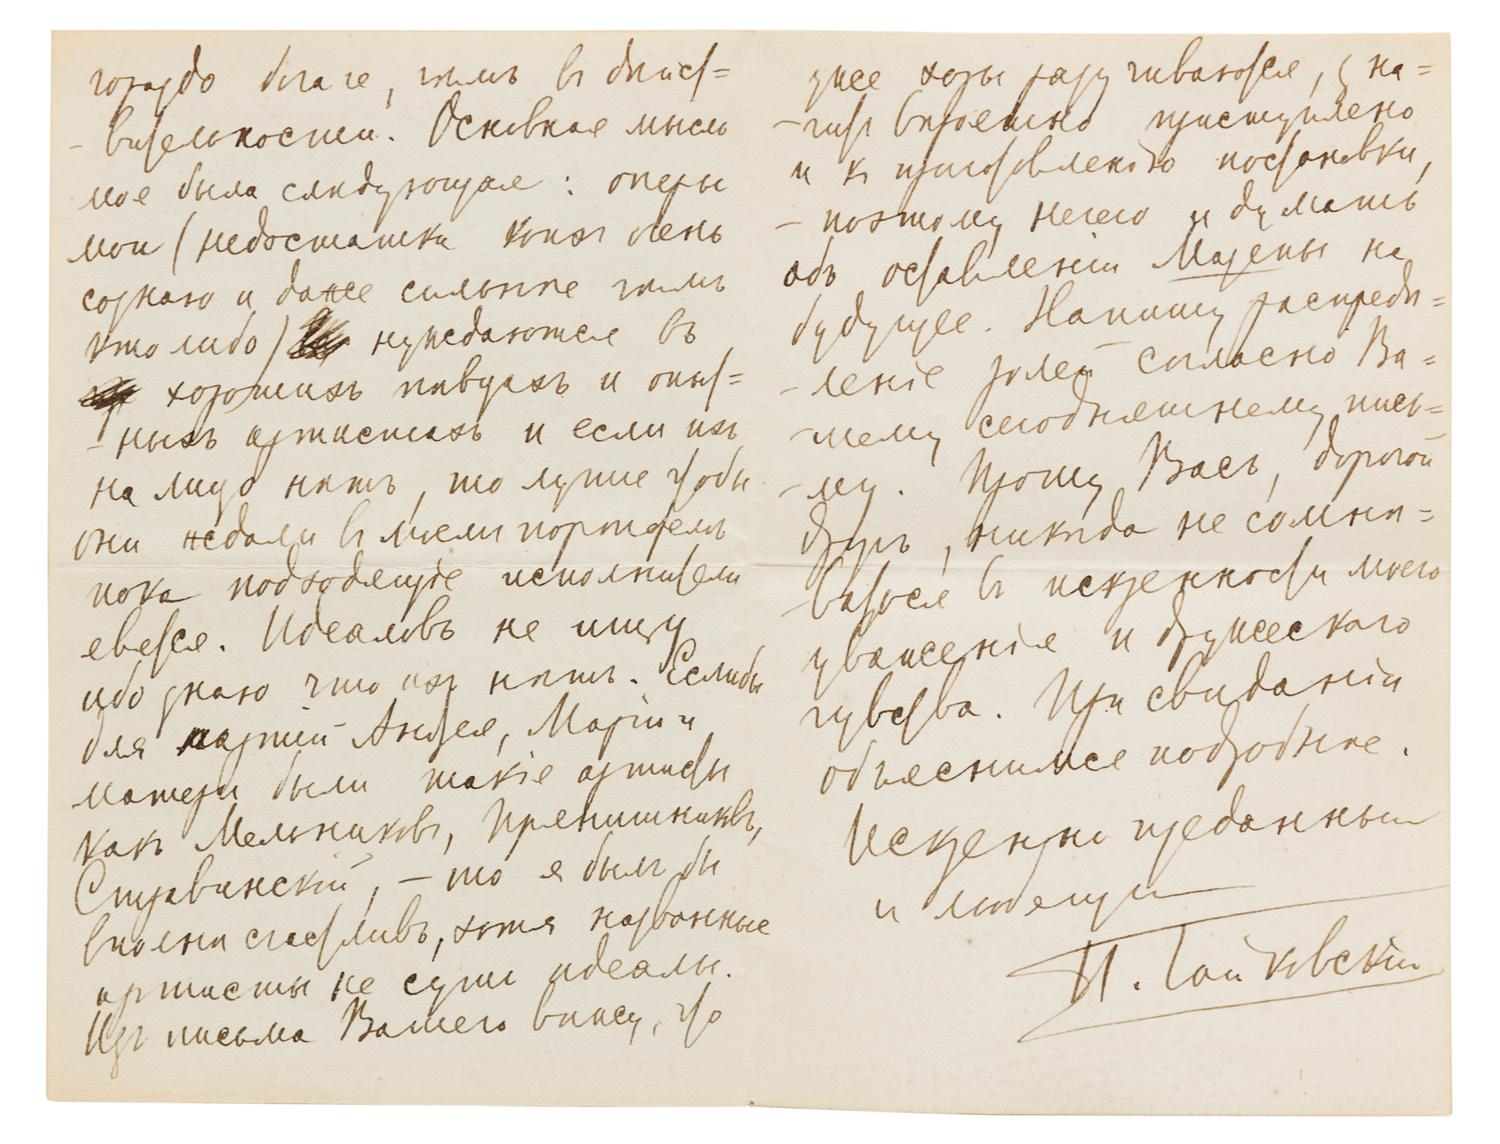 гораздо богаче, чѣмъ въ дѣйст=
-вительности. Основная мысль
моя была слѣдующая: оперы
мои (недостатки коихъ очень
сознаю и даже сильнѣе чѣмъ
кто либо) нуждаются въ
хорошихъ пѣвцахъ и опыт=
-ныхъ артистахъ и если ихъ
на лицо нѣтъ, то лучше чтобы
они ждали въ моемъ портфелѣ
пока подходящіе исполнители
явятся. Идеаловъ не ищу
ибо знаю что ихъ нѣтъ. Еслибы
для партій Андрея, Маріи и
матери были такіе артисты
какъ Мельниковъ, Прянишниковъ,
Стравинскій, – то я былъ бы
вполнѣ счастливъ, хотя названные
артисты не суть идеалы.
Изъ письма Вашего вижу, что
уже хоры разучиваются, на=
-чатъ вѣроятно приступлено
и къ приготовленію постановки,
-поэтому нечего и думать
объ оставленіи Мазепы на
будущее. Напишу распредѣ=
-леніе ролей согласно Ва=
-шему сегодняшнему пись=
-му. Прошу Васъ, дорогой
другъ, никогда не сомнѣ=
-ваться въ искренности моего
уваженія и дружескаго
чувства. При свиданіи
объяснимся подробнѣе.
Искренно преданный
и любящій
П. Чайковскій